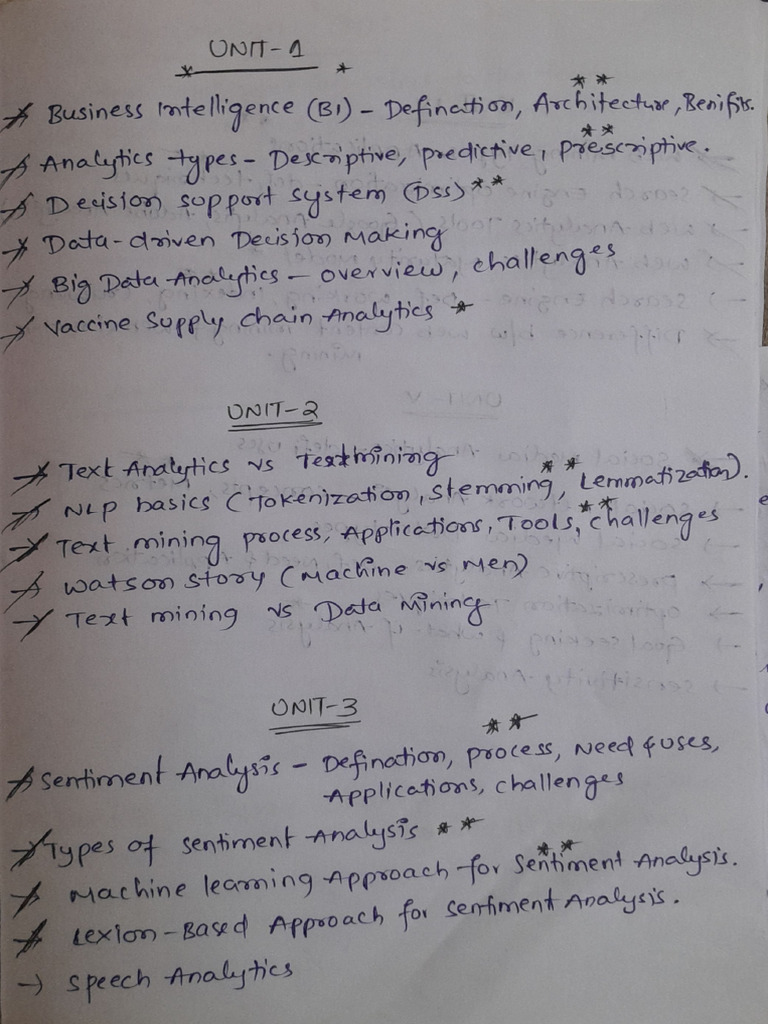 UNIT-1
* *
* *
Business Intelligence (BI) - Defination, Architecture, Benifits.
* *
Analytics types - Descriptive, predictive, prescriptive.
Decision support system (DSS) * *
Data-driven Decision Making
Big Data Analytics - overview, challenges
Vaccine Supply chain Analytics *
UNIT-2
Text Analytics vs Textmining
* *
NLP basics (Tokenization, Stemming, Lemmatization).
* *
Text mining process, Applications, Tools, challenges
Watson story (Machine vs Men)
Text mining vs Data Mining
UNIT-3
* *
Sentiment Analysis - Defination, process, Need & uses,
Applications, challenges
Types of sentiment Analysis * *
* *
Machine learning Approach for Sentiment Analysis.
Lexion-Based Approach for sentiment Analysis.
→ Speech Analytics